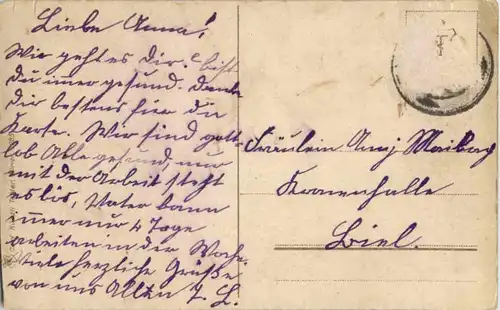 Liebe Anna!
Wie geht es Dir. bist
Du imer gesund. Danke
Dir bestens für die
Karte. Wir sind gott-
lob Alle gesund, nur
mit der Arbeit steht
es bös, Vater kann
immer nur 4 Tage
arbeiten in der Woche.
Viele herzliche Grüße
von uns Allen
Fräulein Maibach
Kronenhalle
Biel.